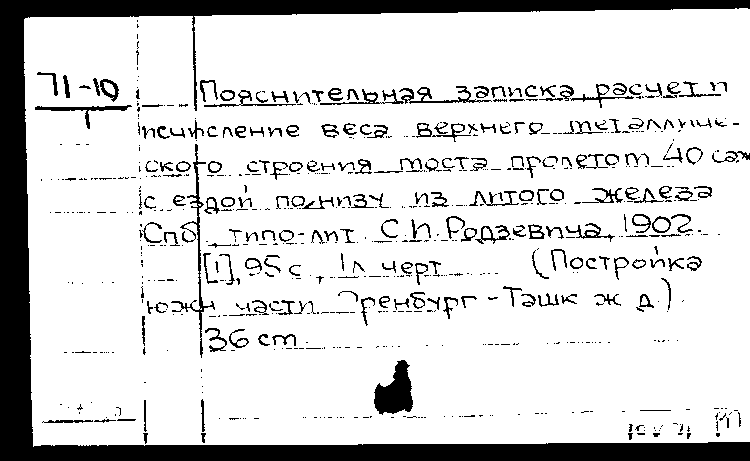 71-10
1
Пояснительная записка, расчет и
исчисление веса верхнего металличе-
ского строения моста пролетом 40 саж
с ездой понизу из литого железа
Спб, типо-лит. С.И. Родзевича, 1902.
[1], 95 с, 1л черт (Постройка
южн части Оренбург-Ташк ж д).
36 cm